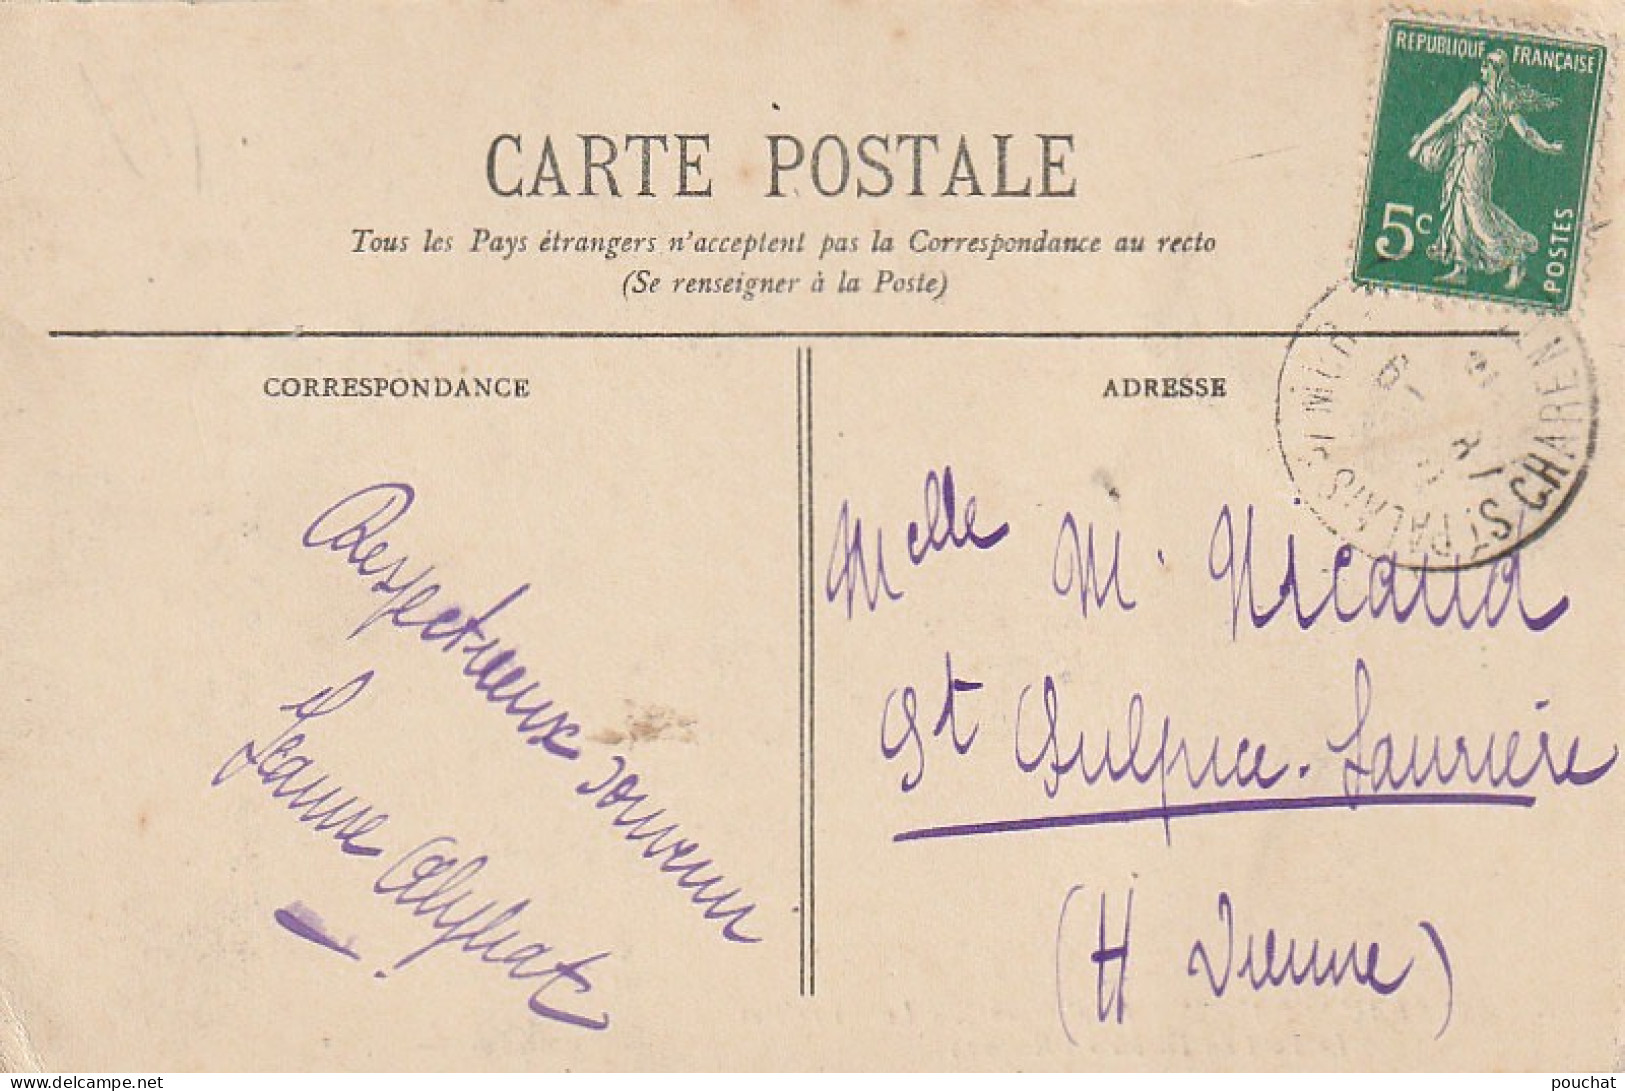 CARTE POSTALE
Tous les Pays étrangers n'acceptent pas la Correspondance au recto
(Se renseigner à la Poste)
REPUBLIQUE FRANÇAISE
5c
POSTES
CORRESPONDANCE
ADRESSE
ST PALAIS S/ MER
CHAREN
Respectueux souvenir
Jeanne
Melle M. Nicaud
St Sulpice-Laurière
(H Vienne)
www.delcampe.net
pouchat